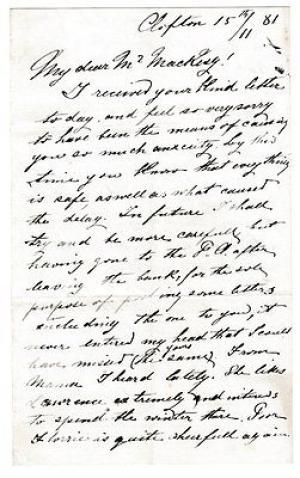 Clifton 15th/11 81
My dear Mr Mackesy!
I received your kind letter
to day, and feel so very sorry
to have been the means of causing
you so much anxiety, by this
time you know that everything
is safe, as well as what caused
the delay. In future I shall
try and be more careful, but
having gone to the P. O. after
leaving the bank, for the sole
purpose of posting some letters
including the one to you, it
never entered my head that I could
have missed the (yours) same. From
Mama I heard lately. She likes
Lawrence extremely and intends
to spend the winter there. Poor
Florrie is quite cheerfull again